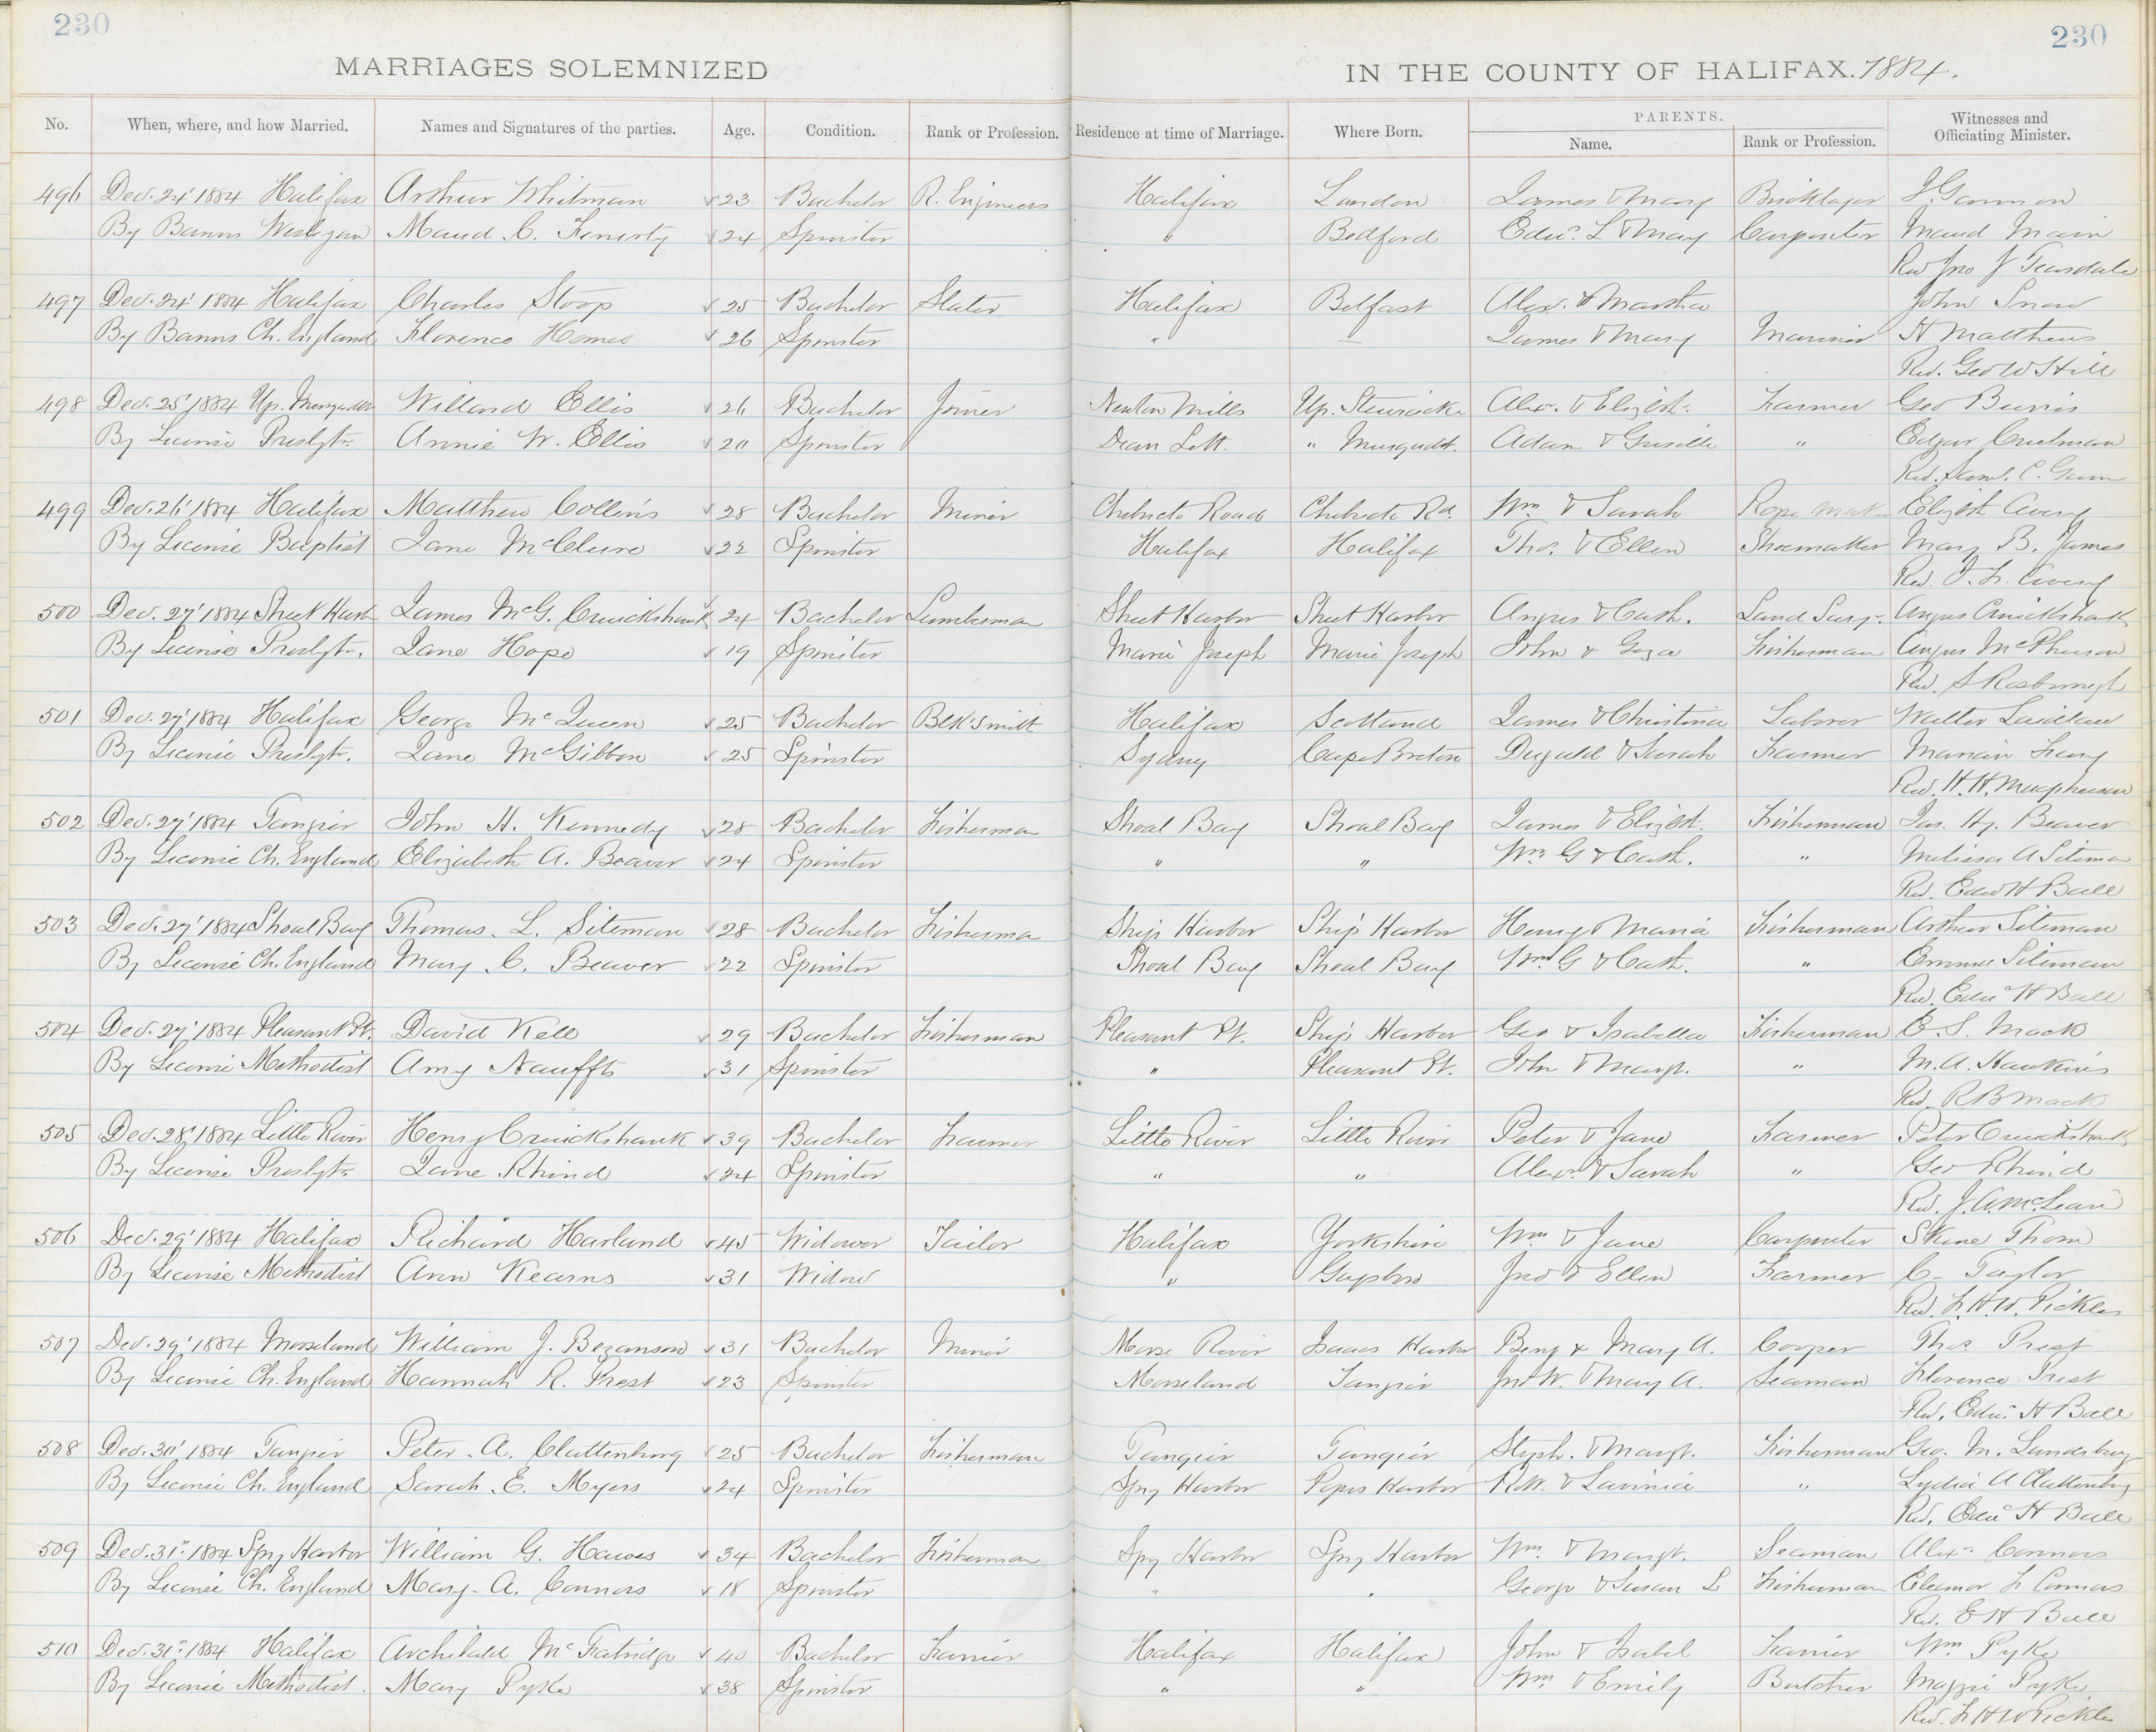 230
230
MARRIAGES SOLEMNIZED IN THE COUNTY OF HALIFAX. 1884.
No. When, where, and how Married. Names and Signatures of the parties. Age. Condition. Rank or Profession. Residence at time of Marriage. Where Born. PARENTS. Name. Rank or Profession. Witnesses and Officiating Minister.
496 Dec. 24' 1884 Halifax Arthur Whitman 23 Bachelor R. Engineers Halifax London James & Mary Bricklayer J. Gammon
By Banns Wesleyan Maud C. Fenerty 24 Spinster " Bedford Edwd. L & Mary Carpenter Maud Main
Rev Jno J Teasdale
497 Dec. 24' 1884 Halifax Charles Stoop 25 Bachelor Slater Halifax Belfast Alex. & Martha John Snow
By Banns Ch. England Florence Homes 26 Spinster " — James & Mary Mariner H Matthews
Rev. Geo W Hill
498 Dec. 25' 1884 Up. Musquodt Willard Ellis 26 Bachelor Joiner Newton Mills Up. Stewiacke Alexr. & Elizbth. Farmer Geo Burris
By License Presbytn. Annie W. Ellis 20 Spinster Dean Sett. " Musquodt. Adam & Grisille " Edgar Creelman
Rev. Saml. C. Gunn
499 Dec. 26' 1884 Halifax Matthew Collins 28 Bachelor Miner Chebucto Road Chebucto Rd. Wm & Sarah Rope Mak Elizbth Avery
By License Baptist Jane McClure 22 Spinster Halifax Halifax Thos. & Ellen Shoemaker Mary B. James
Rev. J. F. Avery
500 Dec. 27' 1884 Sheet Harb James McG. Cruickshank 24 Bachelor Lumberman Sheet Harbor Sheet Harbor Angus & Cath. Land Survr. Angus Cruickshank
By License Presbytn. Jane Hope 19 Spinster Marie Joseph Marie Joseph John & Fisherman Angus McPherson
Rev. S Rosborough
501 Dec. 27' 1884 Halifax George McQueen 25 Bachelor Blk Smith Halifax Scotland James & Christina Laborer Walter Laidlaw
By License Presbytn. Jane McGibbon 25 Spinster Sydney Cape Breton Dugald & Sarah Farmer
Rev. H. H. Macpherson
502 Dec. 27' 1884 Tangier John H. Kennedy 28 Bachelor Fisherman Shoal Bay Shoal Bay James & Elizbth. Fisherman Jas. Hy. Beaver
By License Ch. England Elizabeth A. Beaver 24 Spinster " " Wm G & Cath. " Melissa A Siteman
Rev. Edwd H Ball
503 Dec. 27' 1884 Shoal Bay Thomas. L. Siteman 28 Bachelor Fisherman Ship Harbor Ship Harbor Henry & Maria Fisherman Arthur Siteman
By License Ch. England Mary C. Beaver 22 Spinster Shoal Bay Shoal Bay Wm G & Cath. " Emma Siteman
Rev. Edwd H Ball
504 Dec. 27' 1884 Pleasant Pt. David Kell 29 Bachelor Fisherman Pleasant Pt. Ship Harbor Geo & Isabella Fisherman E. S. Mack
By License Methodist Amy Nauffts 31 Spinster " Pleasant Pt. John & Margt. " M. A. Hawkins
Rev. R B Mack
505 Dec. 28' 1884 Little River Henry Cruickshank 39 Bachelor Farmer Little River Little River Peter & Jane Farmer Peter Cruickshank
By License Presbytn. Jane Rhind 24 Spinster " " Alexr. & Sarah " Geo Rhind
Rev. J. A. McLean
506 Dec. 29' 1884 Halifax Richard Harland 45 Widower Tailor Halifax Yorkshire Wm & Jane Carpenter Skene Thom
By License Methodist Ann Kearns 31 Widow " Guysboro Jno & Ellen Farmer C. Taylor
Rev. F. H. W. Pickles
507 Dec. 29' 1884 Mooseland William J. Bezanson 31 Bachelor Miner Moose River Isaacs Harbor Benj & Mary A. Cooper Thos Prest
By License Ch. England Hannah R. Prest 23 Spinster Mooseland Tangier Jno W. & Mary A. Seaman Florence Prest
Rev. Edwd. H Ball
508 Dec. 30' 1884 Tangier Peter. A. Clattenburg 25 Bachelor Fisherman Tangier Tangier Steph. & Margt. Fisherman Geo. M. Landsburg
By License Ch. England Sarah. E. Myers 24 Spinster Spry Harbor Popes Harbor & Lavinia " Lydia A Clattenburg
Rev. Edwd H Ball
509 Dec. 31st 1884 Spry Harbor William G. Hawes 34 Bachelor Fisherman Spry Harbor Spry Harbor Wm. & Margt. Seaman Alexr. Connors
By License Ch. England Mary A. Connors 18 Spinster " " George & Susan L Fisherman Eleanor F Connors
Rev. E H Ball
510 Dec. 31st 1884 Halifax Archibald McFatridge 40 Bachelor Farrier Halifax Halifax John & Isabel Farrier Wm Pyke
By License Methodist. Mary Pyke 38 Spinster " " Wm & Emily Butcher Maggie Pyke
Rev. F H W Pickles